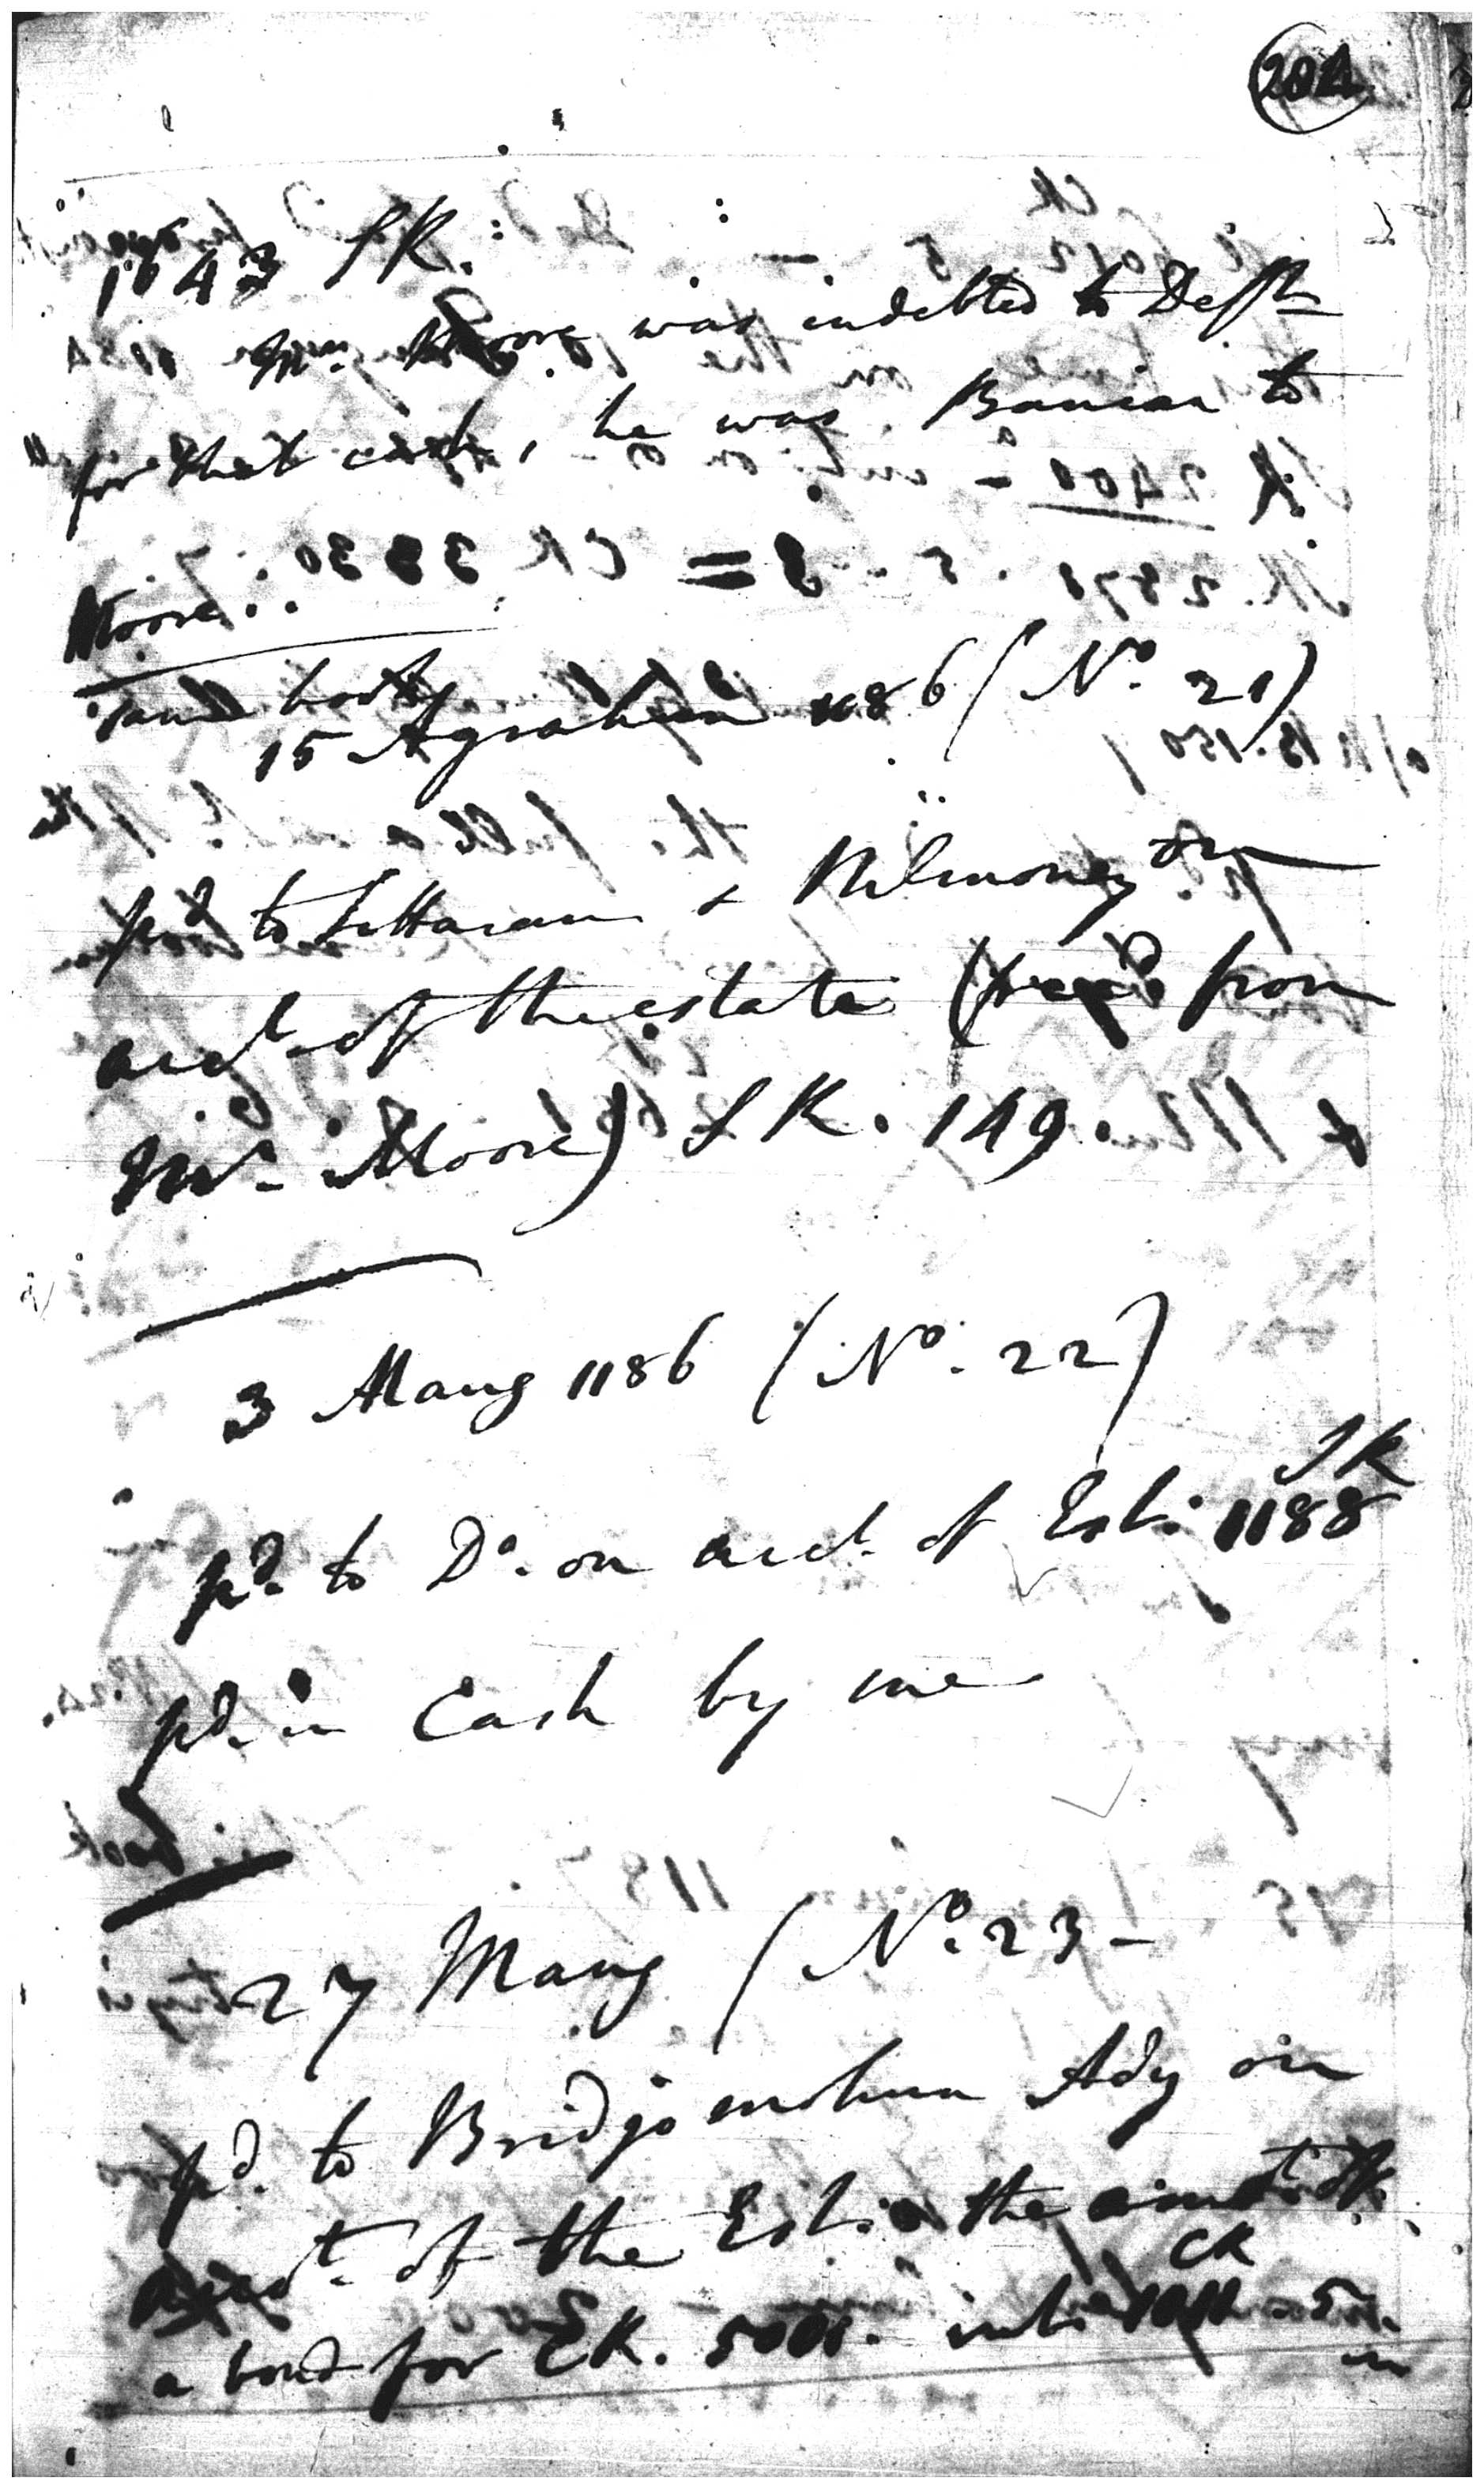 204
1843 SR.
Mr. Moore was indebted to Defts
for that cash, he was Banian to
Moore..
Same book
15 Agrahun 1186 (No. 21)
pd to Sittaram & Nilmoney on
acct. of the estate (recd from
Mr. Moore) SR. 149.
3 Maug 1186 (No. 22)
SR
pd. to Do. on acct. of Est. 1188
pd. in Cash by me
27 Maug (No. 23-
pd. to Bridjo mohun Ady on
acct. of the Est. the amot. of
CR
a bond for CR. 5001. int.